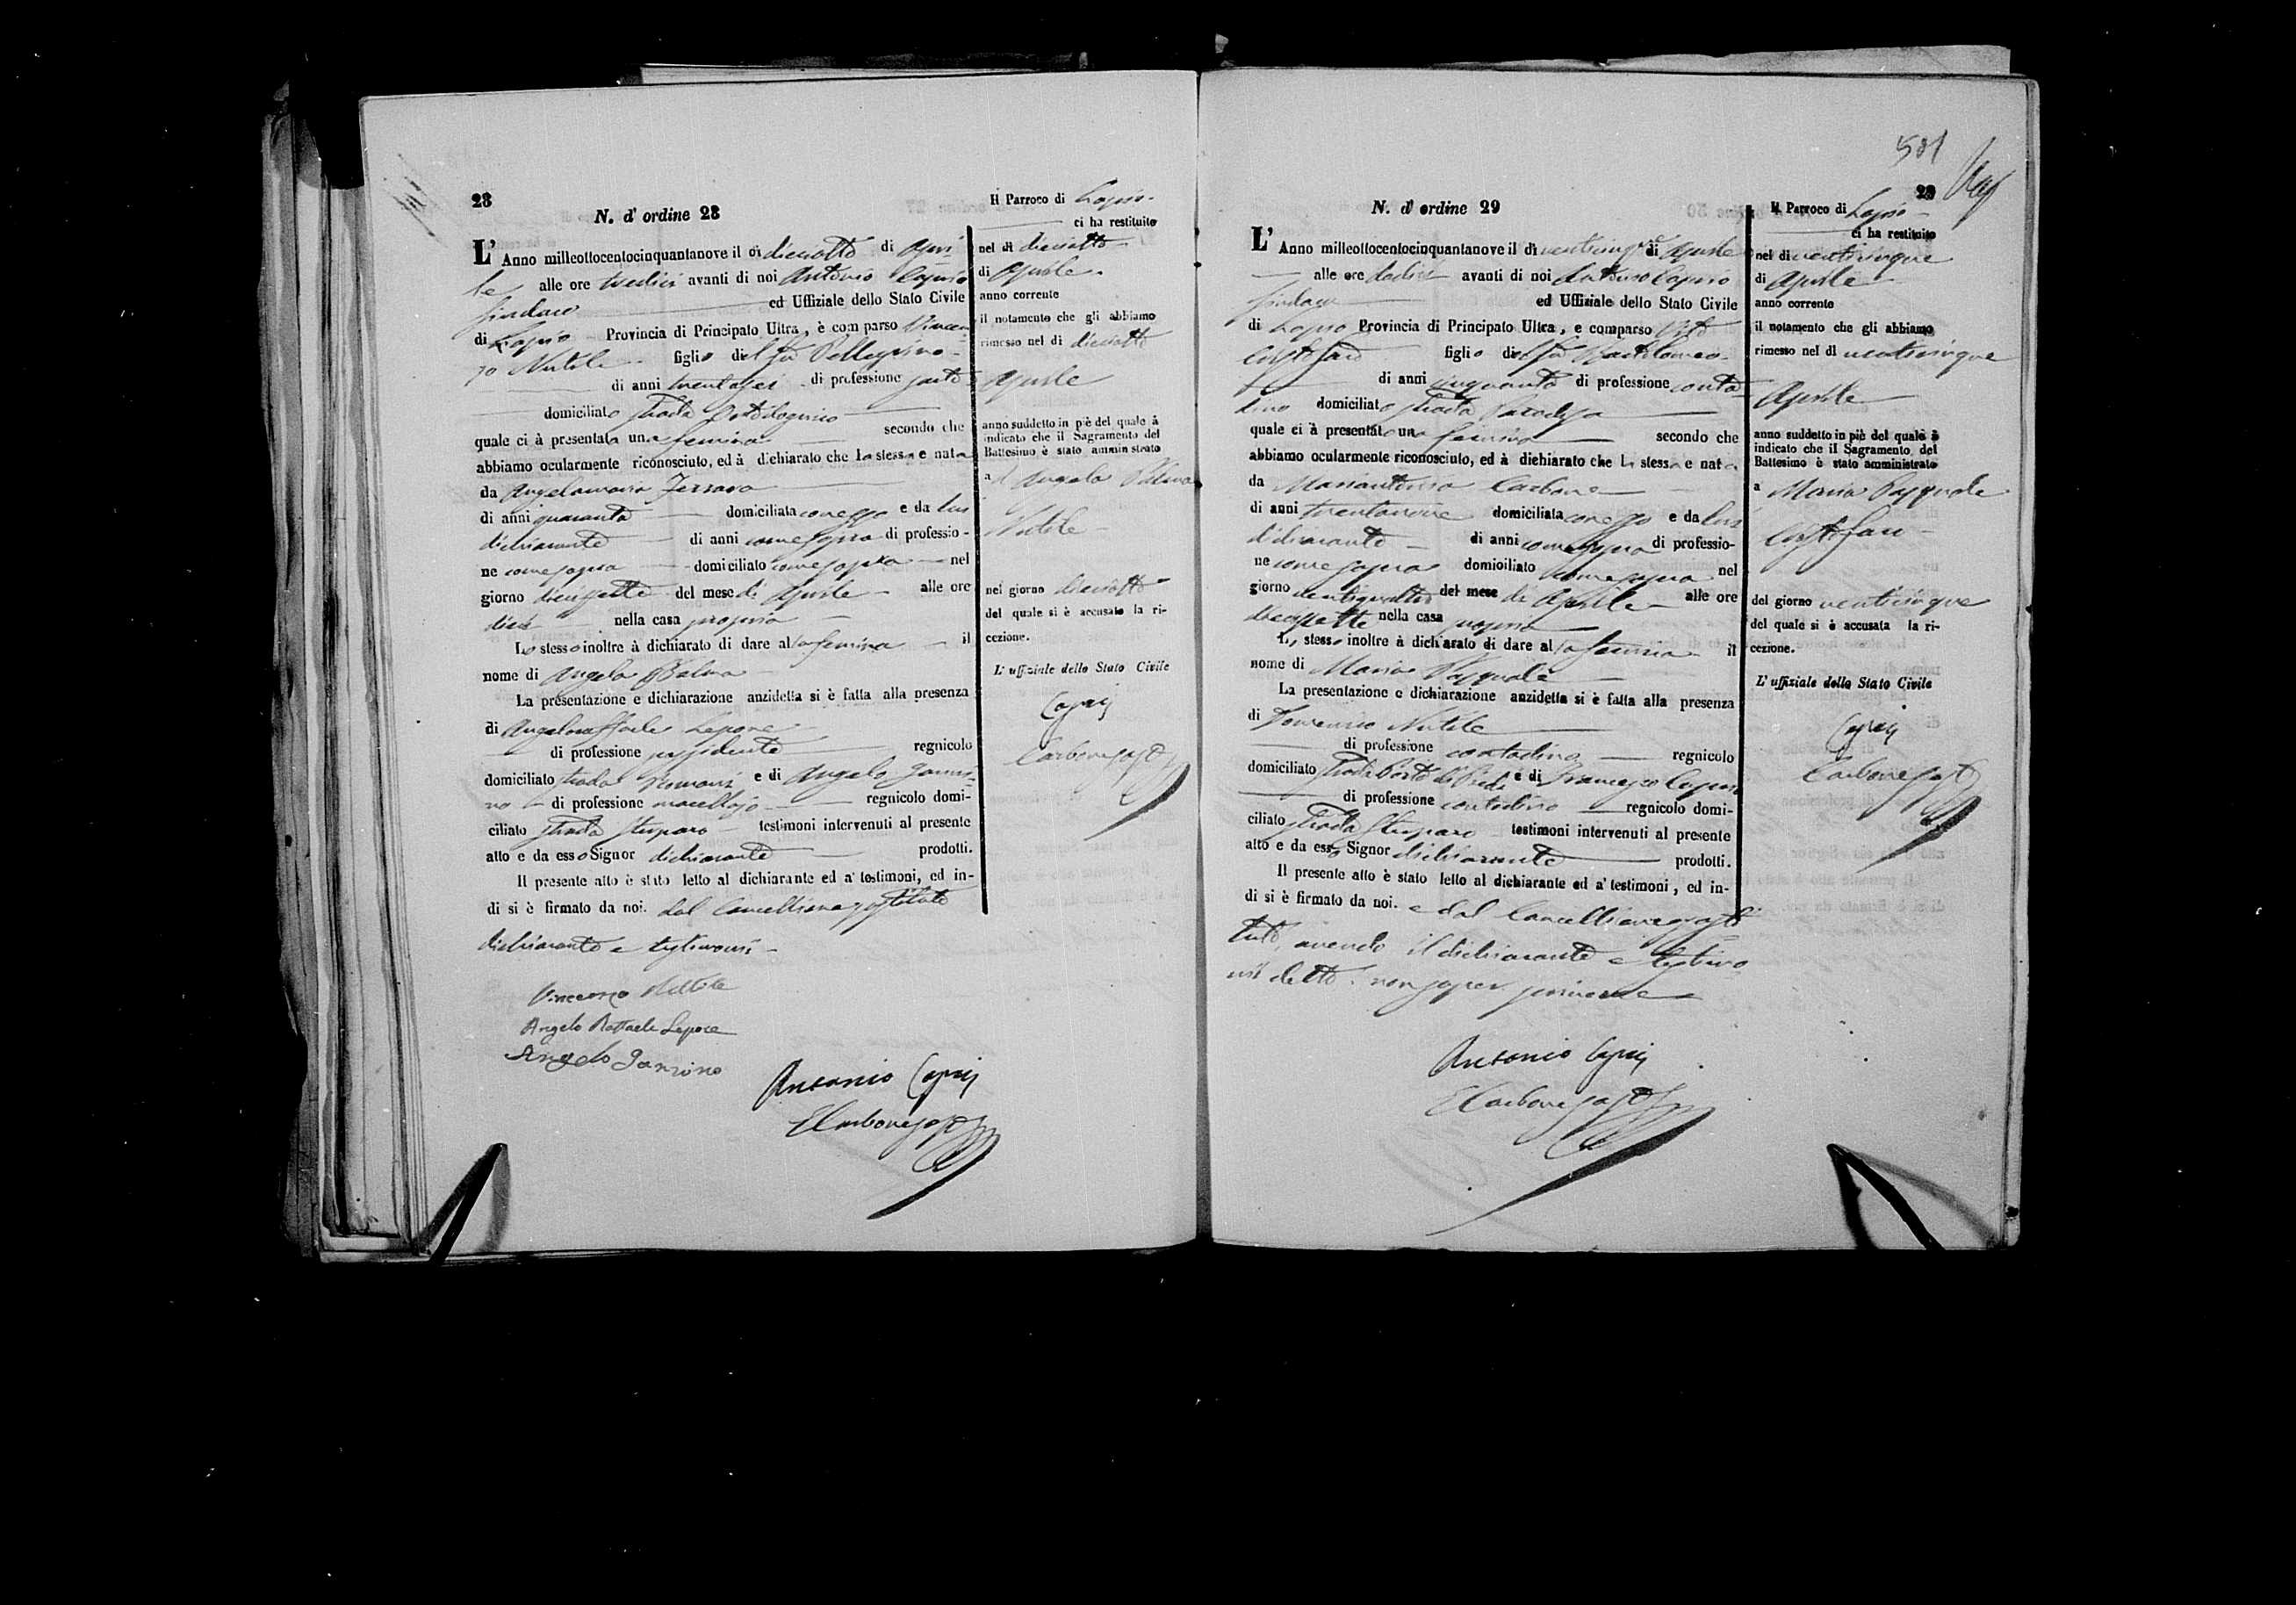 28
N. d' ordine 28
L' Anno milleottocentocinquantanove il dì dieciotto di Apri-
le alle ore tredici avanti di noi Antonio Caprio
Sindaco ed Uffiziale dello Stato Civile
di Lapio Provincia di Principato Ultra, è comparso Vincen
zo Nutile figlio del fu Pellegrino
di anni trentasei di professione
domiciliato strada
quale ci à presentata una femina secondo che
abbiamo ocularmente riconosciuto, ed à dichiarato che la stessa e nata
da Angelamaria Ferraro
di anni quaranta domiciliata e da lui
dichiarante di anni come sopra di professio-
ne come sopra domiciliato come sopra nel
giorno diecisette del mese di Aprile alle ore
dieci nella casa propria
Lo stesso inoltre à dichiarato di dare alla femina il
nome di Angela Palma
La presentazione e dichiarazione anzidetta si è fatta alla presenza
di Angeloraffaele Lepore
di professione possidente regnicolo
domiciliato strada Romani e di Angelo
no di professione macellajo regnicolo domi-
ciliato strada testimoni intervenuti al presente
atto e da esso Signor dichiarante prodotti.
Il presente atto è stato letto al dichiarante ed a' testimoni, ed in-
di si è firmato da noi. dal Cancelliere sostituto
dichiarante e testimoni
Vincenzo Nutile
Angelo Raffaele Lepore
Angelo
Antonio Caprio
Carbone
Il Parroco di Lapio
ci ha restituito
nel dì dieciotto
di Aprile
anno corrente
il notamento che gli abbiamo
rimesso nel dì dieciotto
Aprile
anno suddetto in piè del quale à
indicato che il Sagramento del
Battesimo è stato amministrato
a Angela Palma
Nutile
nel giorno dieciotto
del quale si è accusato la ri-
cezione.
L' uffiziale dello Stato Civile
Caprio
Carbone
581
29
N. d' ordine 29
L' Anno milleottocentocinquantanove il dì venticinque di Aprile
alle ore dodici avanti di noi Antonio Caprio
Sindaco ed Uffiziale dello Stato Civile
di Lapio Provincia di Principato Ultra, e comparso Vito
Cristofaro figlio del fu Bartolomeo
di anni cinquanta di professione conta
dino domiciliato strada
quale ci à presentato una femina secondo che
abbiamo ocularmente riconosciuto, ed à dichiarato che la stessa e nata
da Mariantonia Carbone
di anni trentanove domiciliata e da lui
dichiarante di anni come sopra di professio-
ne come sopra domiciliato come sopra nel
giorno ventiquattro del mese di Aprile alle ore
diecisette nella casa propria
Lo stesso inoltre à dichiarato di dare alla femina il
nome di Maria Pasquale
La presentazione e dichiarazione anzidetta si è fatta alla presenza
di Domenico Nutile
di professione contadino regnicolo
domiciliato strada e di Francesco Caprio
di professione contadino regnicolo domi-
ciliato strada testimoni intervenuti al presente
atto e da esso Signor dichiarante prodotti.
Il presente atto è stato letto al dichiarante ed a' testimoni, ed in-
di si è firmato da noi. e dal Cancelliere sosti
tuto, avendo il dichiarante e testimo
nii detto non saper scrivere
Antonio Caprio
Carbone
Il Parroco di Lapio
ci ha restituito
nel dì venticinque
di Aprile
anno corrente
il notamento che gli abbiamo
rimesso nel dì venticinque
Aprile
anno suddetto in piè del quale à
indicato che il Sagramento del
Battesimo è stato amministrato
a Maria Pasquale
Cristofaro
del giorno venticinque
del quale si è accusata la ri-
cezione.
L' uffiziale dello Stato Civile
Caprio
Carbone